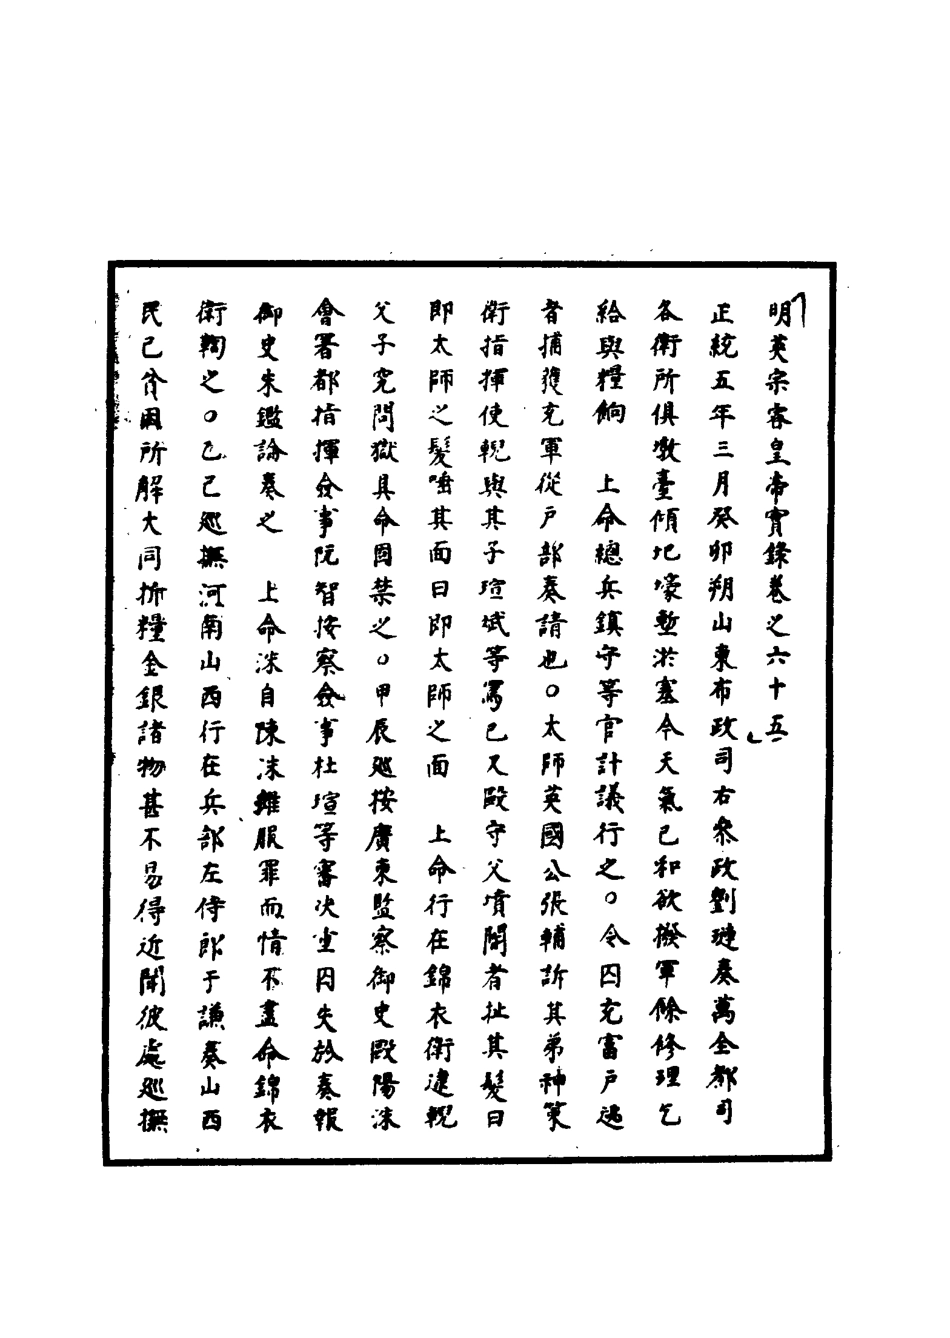 明英宗睿皇帝實錄卷之六十五
正統五年三月癸卯朔山東布政司右叅政劉璉奏萬全都司
各衛所俱墩臺傾圮壕塹淤塞今天氣已和欲撥軍餘修理乞
給與糧餉　上命總兵鎮守等官計議行之○令囚充富戶逃
者捕獲充軍從戶部奏請也○太師英國公張輔訴其弟神策
衛指揮使輗與其子瑄斌等罵己又毆守父墳閽者扯其髮曰
即太師之髮唾其面曰即太師之面　上命行在錦衣衛逮輗
父子究問獄具命固禁之○甲辰廵按廣東監察御史歐陽洙
會署都指揮僉事阮智按察僉事杜瑄等審决重囚失於奏報
御史朱鑑論奏之　上命洙自陳洙雖服罪而情不盡命錦衣
衛鞫之○乙巳廵撫河南山西行在兵部左侍郎于謙奏山西
民已貧困所解大同折糧金銀諸物甚不易得近聞彼處廵撫